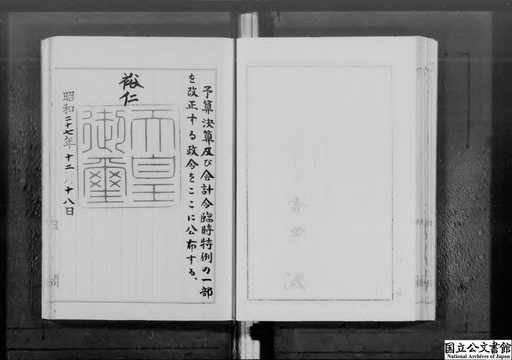 予算決算及び会計令臨時特例の一部
を改正する政令をここに公布する。
裕仁
天皇
御璽
昭和二十七年十二月十八日
国立公文書館
National Archives of Japan